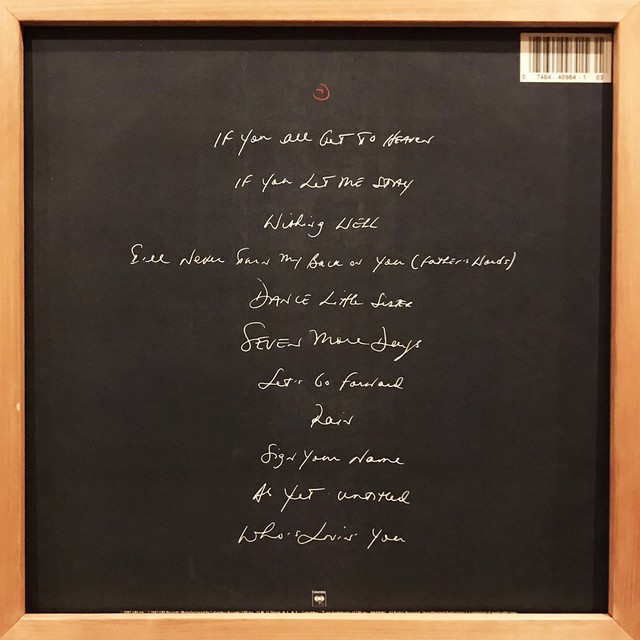 0 7464 40964-1 03
If You All Get To Heaven
If You Let Me Stay
Wishing Well
I'll Never Turn My Back on You (Father's Words)
Dance Little Sister
Seven More Days
Let's Go Forward
Rain
Sign Your Name
As Yet Untitled
Who's Lovin' You